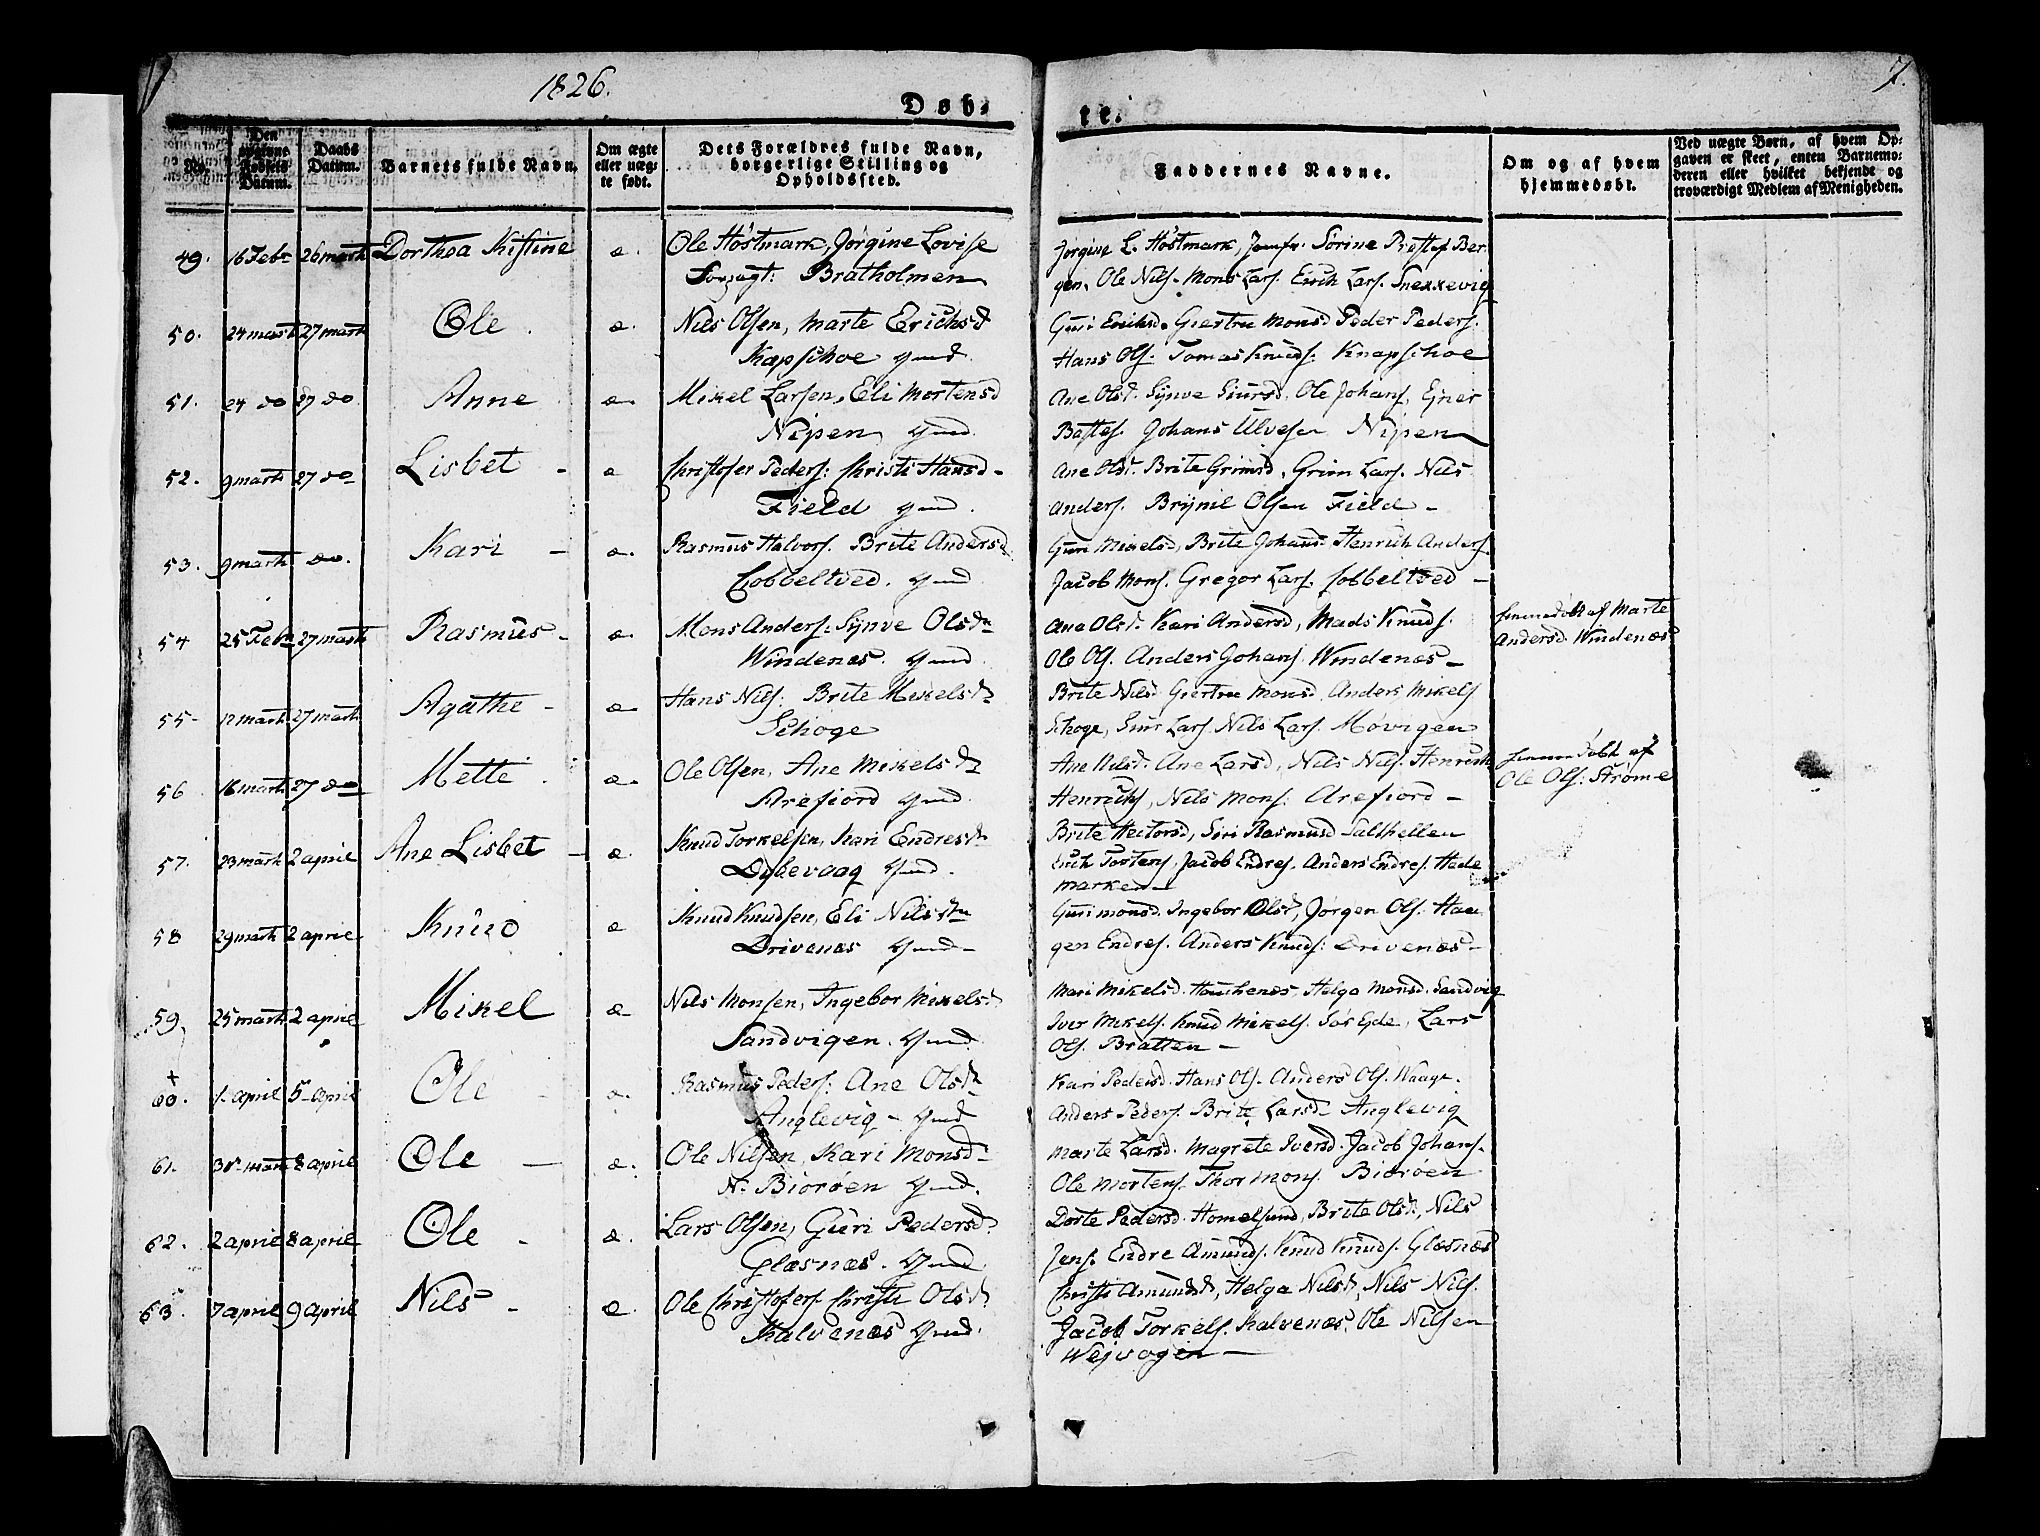 1826.
7.
Døb-
te.
No.
Den
opgivne
Fødsels
Datum.
Daabs
Datum.
Barnets fulde Navn.
Om ægte
eller uæg-
te født.
Dets Forældres fulde Navn,
borgerlige Stilling og
Opholdssted.
Faddernes Navne.
Om og af hvem
hjemmedøbt.
Ved uægte Børn, af hvem Op-
gaven er skeet, enten Barnemo-
deren eller hvilket bekjendt og
troværdigt Medlem af Menigheden.
49. 16 Febr 26 marti Dorthea Kistine æ. Ole Høstmark, Jørgine Lovise
Bratholmen
Jørgine L. Høstmark, Jomfr. Sørine Ber
gen, Ole Nils. Mons Lars. Erich Lars. Snekkevig
50. 24 marti 27 marti Ole æ. Nils Olsen, Marte Erichsd
Kapschoe gmd.
Guri Erichsd. Giertru Monsd Peder Peders.
Hans Ols. Tomas Knuds. Knapschoe
51. 24 do 27 do Anne æ. Mikel Larsen, Eli Mortensd
Nipen gmd.
Ane Olsd. Synve Siursd. Ole Johans. Ejner
Bastes. Johans Ulvesen Nipen
52. 9 marti 27 do Lisbet - æ Christofer Peders: Christi Hansd -
Field gmd.
Ane Olsd. Brite Grimsd. Grim Lars. Nils
Anders. Brynil Olsen Field -
53. 9 marti do. Kari - æ. Rasmus Halvors. Brite Andersd
Cobbeltved. gmd
Guri Mikelsd, Brite Johansd Henrich Anders.
Jacob Mons. Gregor Lars. Cobbeltved -
54 25 Febr 27 marti Rasmus - æ. Mons Anders: Synve Olsdr
Windenæs. gmd
Ane Olsd. Kari Andersd, Mads Knuds.
Ole Ols. Anders Johans Windenæs -
hiemmedøbt af Marte
Andersd Windenæs
55 - 12 marti 27 marti Agathe - æ Hans Nils: Brite Mikelsdr
Schoge
Brite Nilsd Giertru Monsd Anders Mikels
Schoge, Siur Lars Nils Lars. Møvigen
56 16 marti 27 do Mette . æ. Ole Olsen, Ane Mikelsdr
Arefiord gmd.
Ane Nilsd. Ane Larsd, Nils Nils. Henrich
Henrichs, Nils Mons: Arefiord -
hiemmedøbt af
Ole Ols: Strømme
57. 23 marti 2 april Ane Lisbet - æ. Knud Torkelsen, Kari Endresdr
Dybevaag gmd.
Brite Hectorsd, Siri Rasmusd Salthellen
Erich Torstens, Jacob Endres. Anders Endres. Hede
marken -
58 29 marti 2 april Knud æ Knud Knudsen, Eli Nilsdtr
Drivenæs gmd -
Guri Monsd. Ingebor Olsd, Jørgen Ols. Haa
gen Endres. Anders Knuds: Drivenæs -
59. 25 marti 2 april Mikel æ Nils Monsen, Ingebor Mikelsd.
Sandvigen. gmd
Mari Mikelsd. Helga Monsd. Sandvig
Iver Mikels. Knud Mikels. Sør Ejde, Lars
Ols. Bratten -
+
60. 1. april 5 - april Ole - æ. Rasmus Peders: Ane Olsdr
Anglevig - gmd
Kari Pedersd. Hans Ols. Anders Ols. Waage.
Anders Peders. Brite Larsd - Anglevig
61. 30 marti 8 april Ole - æ. Ole Nilsen, Kari Monsd -
N. Biorøen gmd.
Marte Larsd. Magrete Iversd. Jacob Johans.
Ole Mortens. Thor Mons. Biorøen
62. 2 april 8 april Ole - æ. Lars Olsen, Guri Pedersd.
Glæsnæs. gmd
Dorte Pedersd. Homelsund, Brite Olsd, Nils
Jens. Endre Amunds. Knud Knuds. Glæsnæs
63. 7 april 9 april Nils - æ. Ole Christofers. Christi Olsd
Kalvenæs gmd.
Christi Amundsd, Helga Nilsd, Nils Nils.
Jacob Torkels. Kalvenæs. Ole Nilsen
Wejvogen -